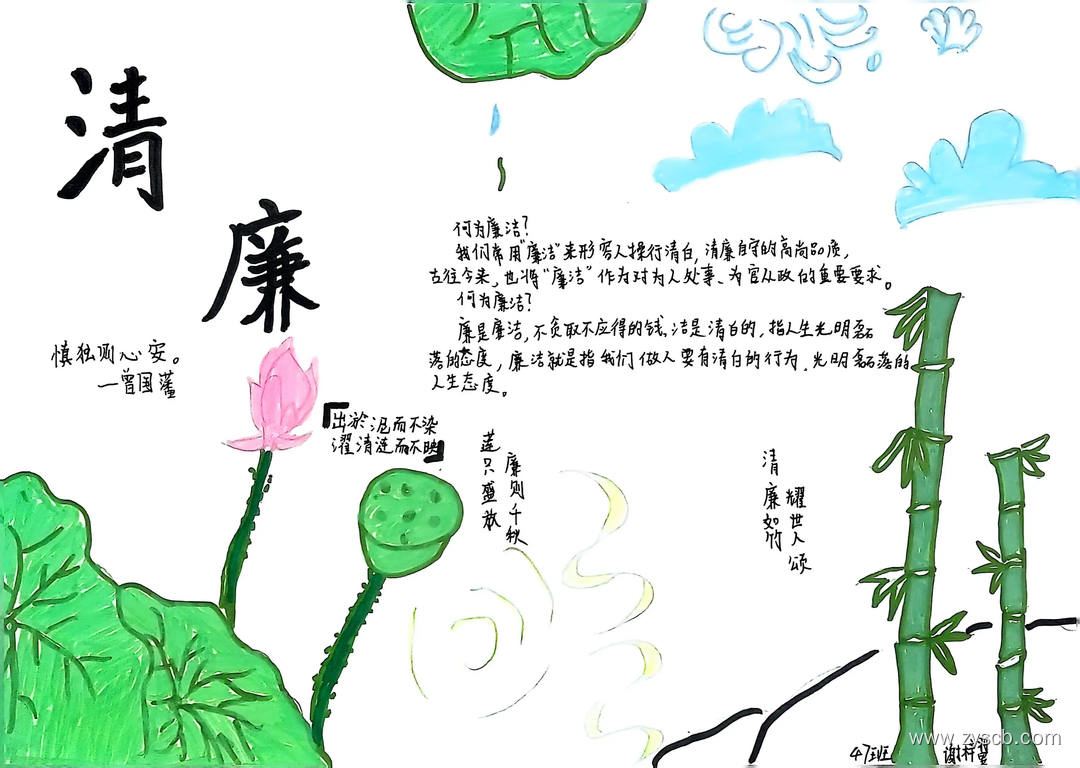 清
廉
慎独则心安。
—曾国藩
何为廉洁？
我们常用“廉洁”来形容人操行清白，清廉自守的高尚品质，
古往今来，也将“廉洁”作为对为人处事、为官从政的重要要求。
何为廉洁？
廉是廉洁，不贪取不应得的钱，洁是清白的，指人生光明磊
落的态度，廉洁就是指我们做人要有清白的行为，光明磊落的
人生态度。
「出淤泥而不染
濯清涟而不映」
莲只盛放
廉则千秋
清廉如竹
耀世人颂
47班
www.zyscb.com